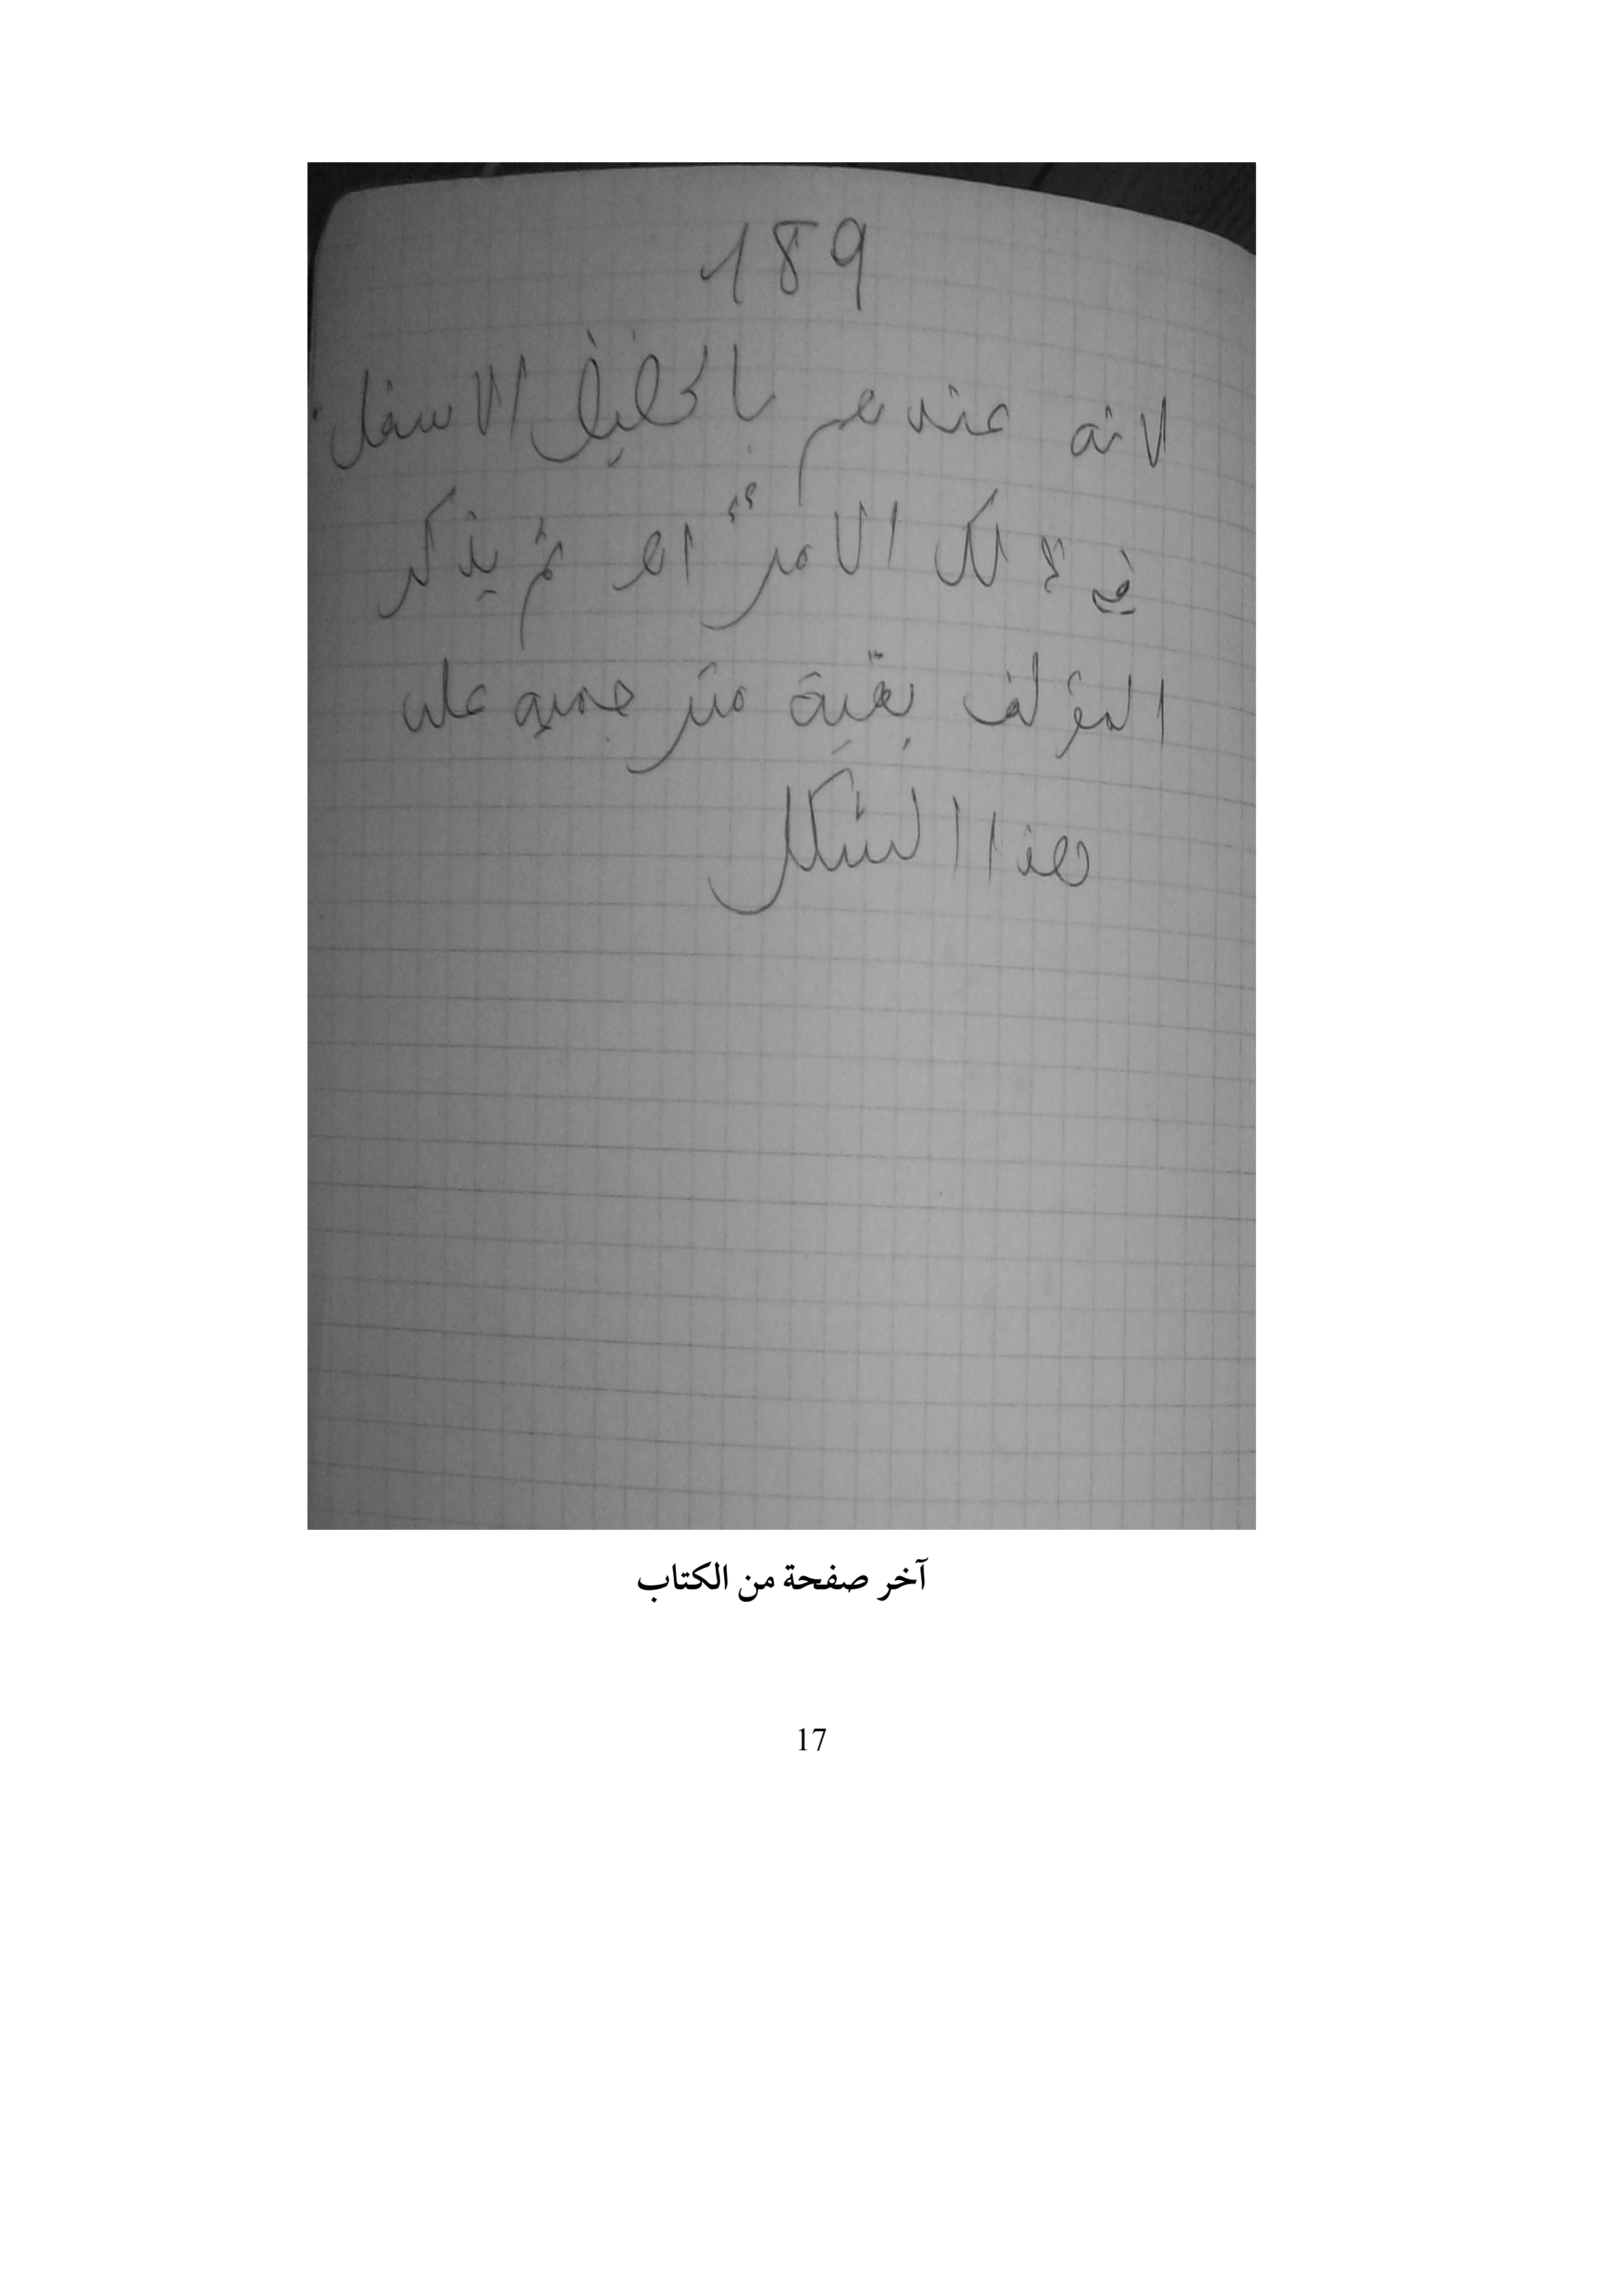 189
لانه عندهم بالحضيض الاسفل
في ذلك الامر" اهـ ثم يذكر
المؤلف بقية مترجميه على
هذا الشكل
آخر صفحة من الكتاب
17